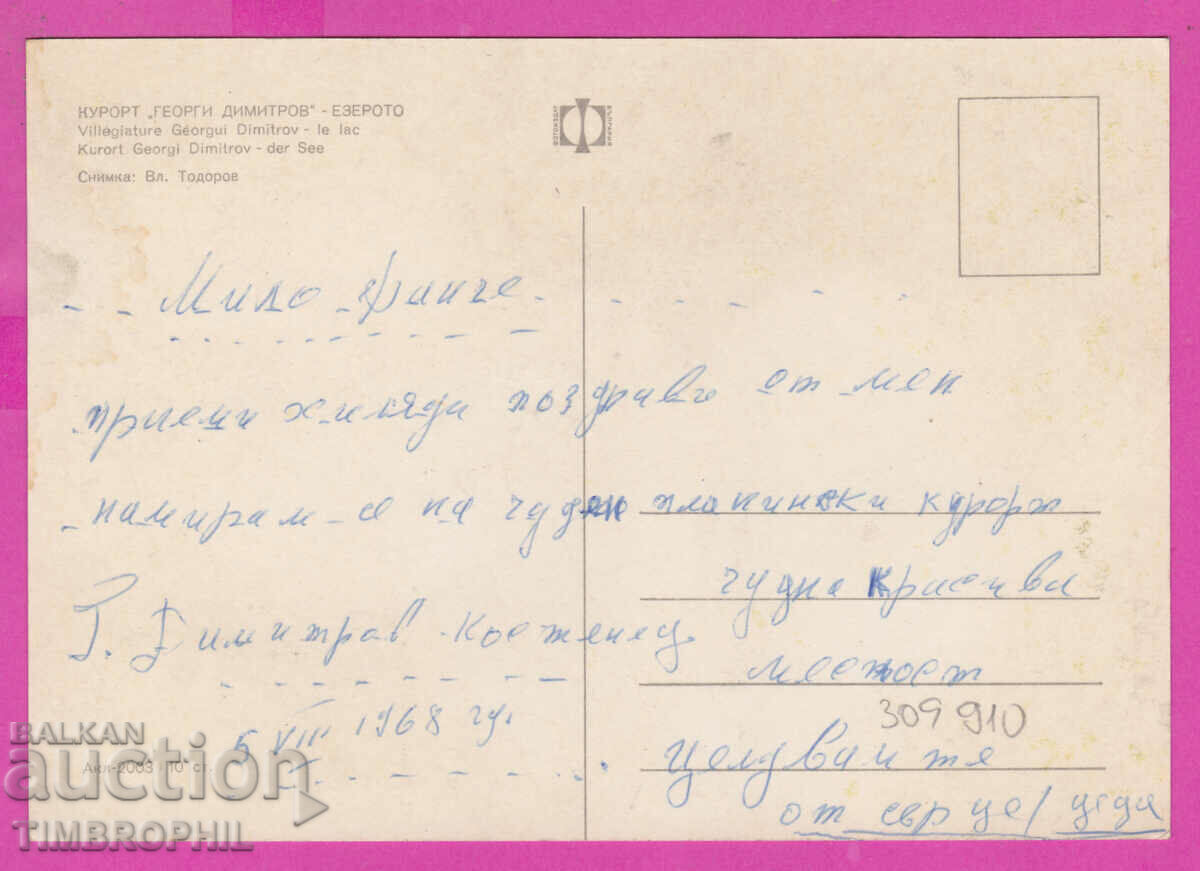 КУРОРТ „ГЕОРГИ ДИМИТРОВ" - ЕЗЕРОТО
Villégiature Géorgui Dimitrov - le lac
Kurort Georgi Dimitrov - der See
Снимка: Вл. Тодоров
ФОТОИЗДАТ
БЪЛГАРИЯ
Мило Фанче
приеми хиляди поздрави от мен
намирам се на чуден планински курорт
чудна красива
Г. Димитров Костенец
местност
309910
5 VIII 1968 гд.
целувам те
от сърце / деда
Акл-2003 10 ст.
BALKAN
auction
TIMBROPHIL